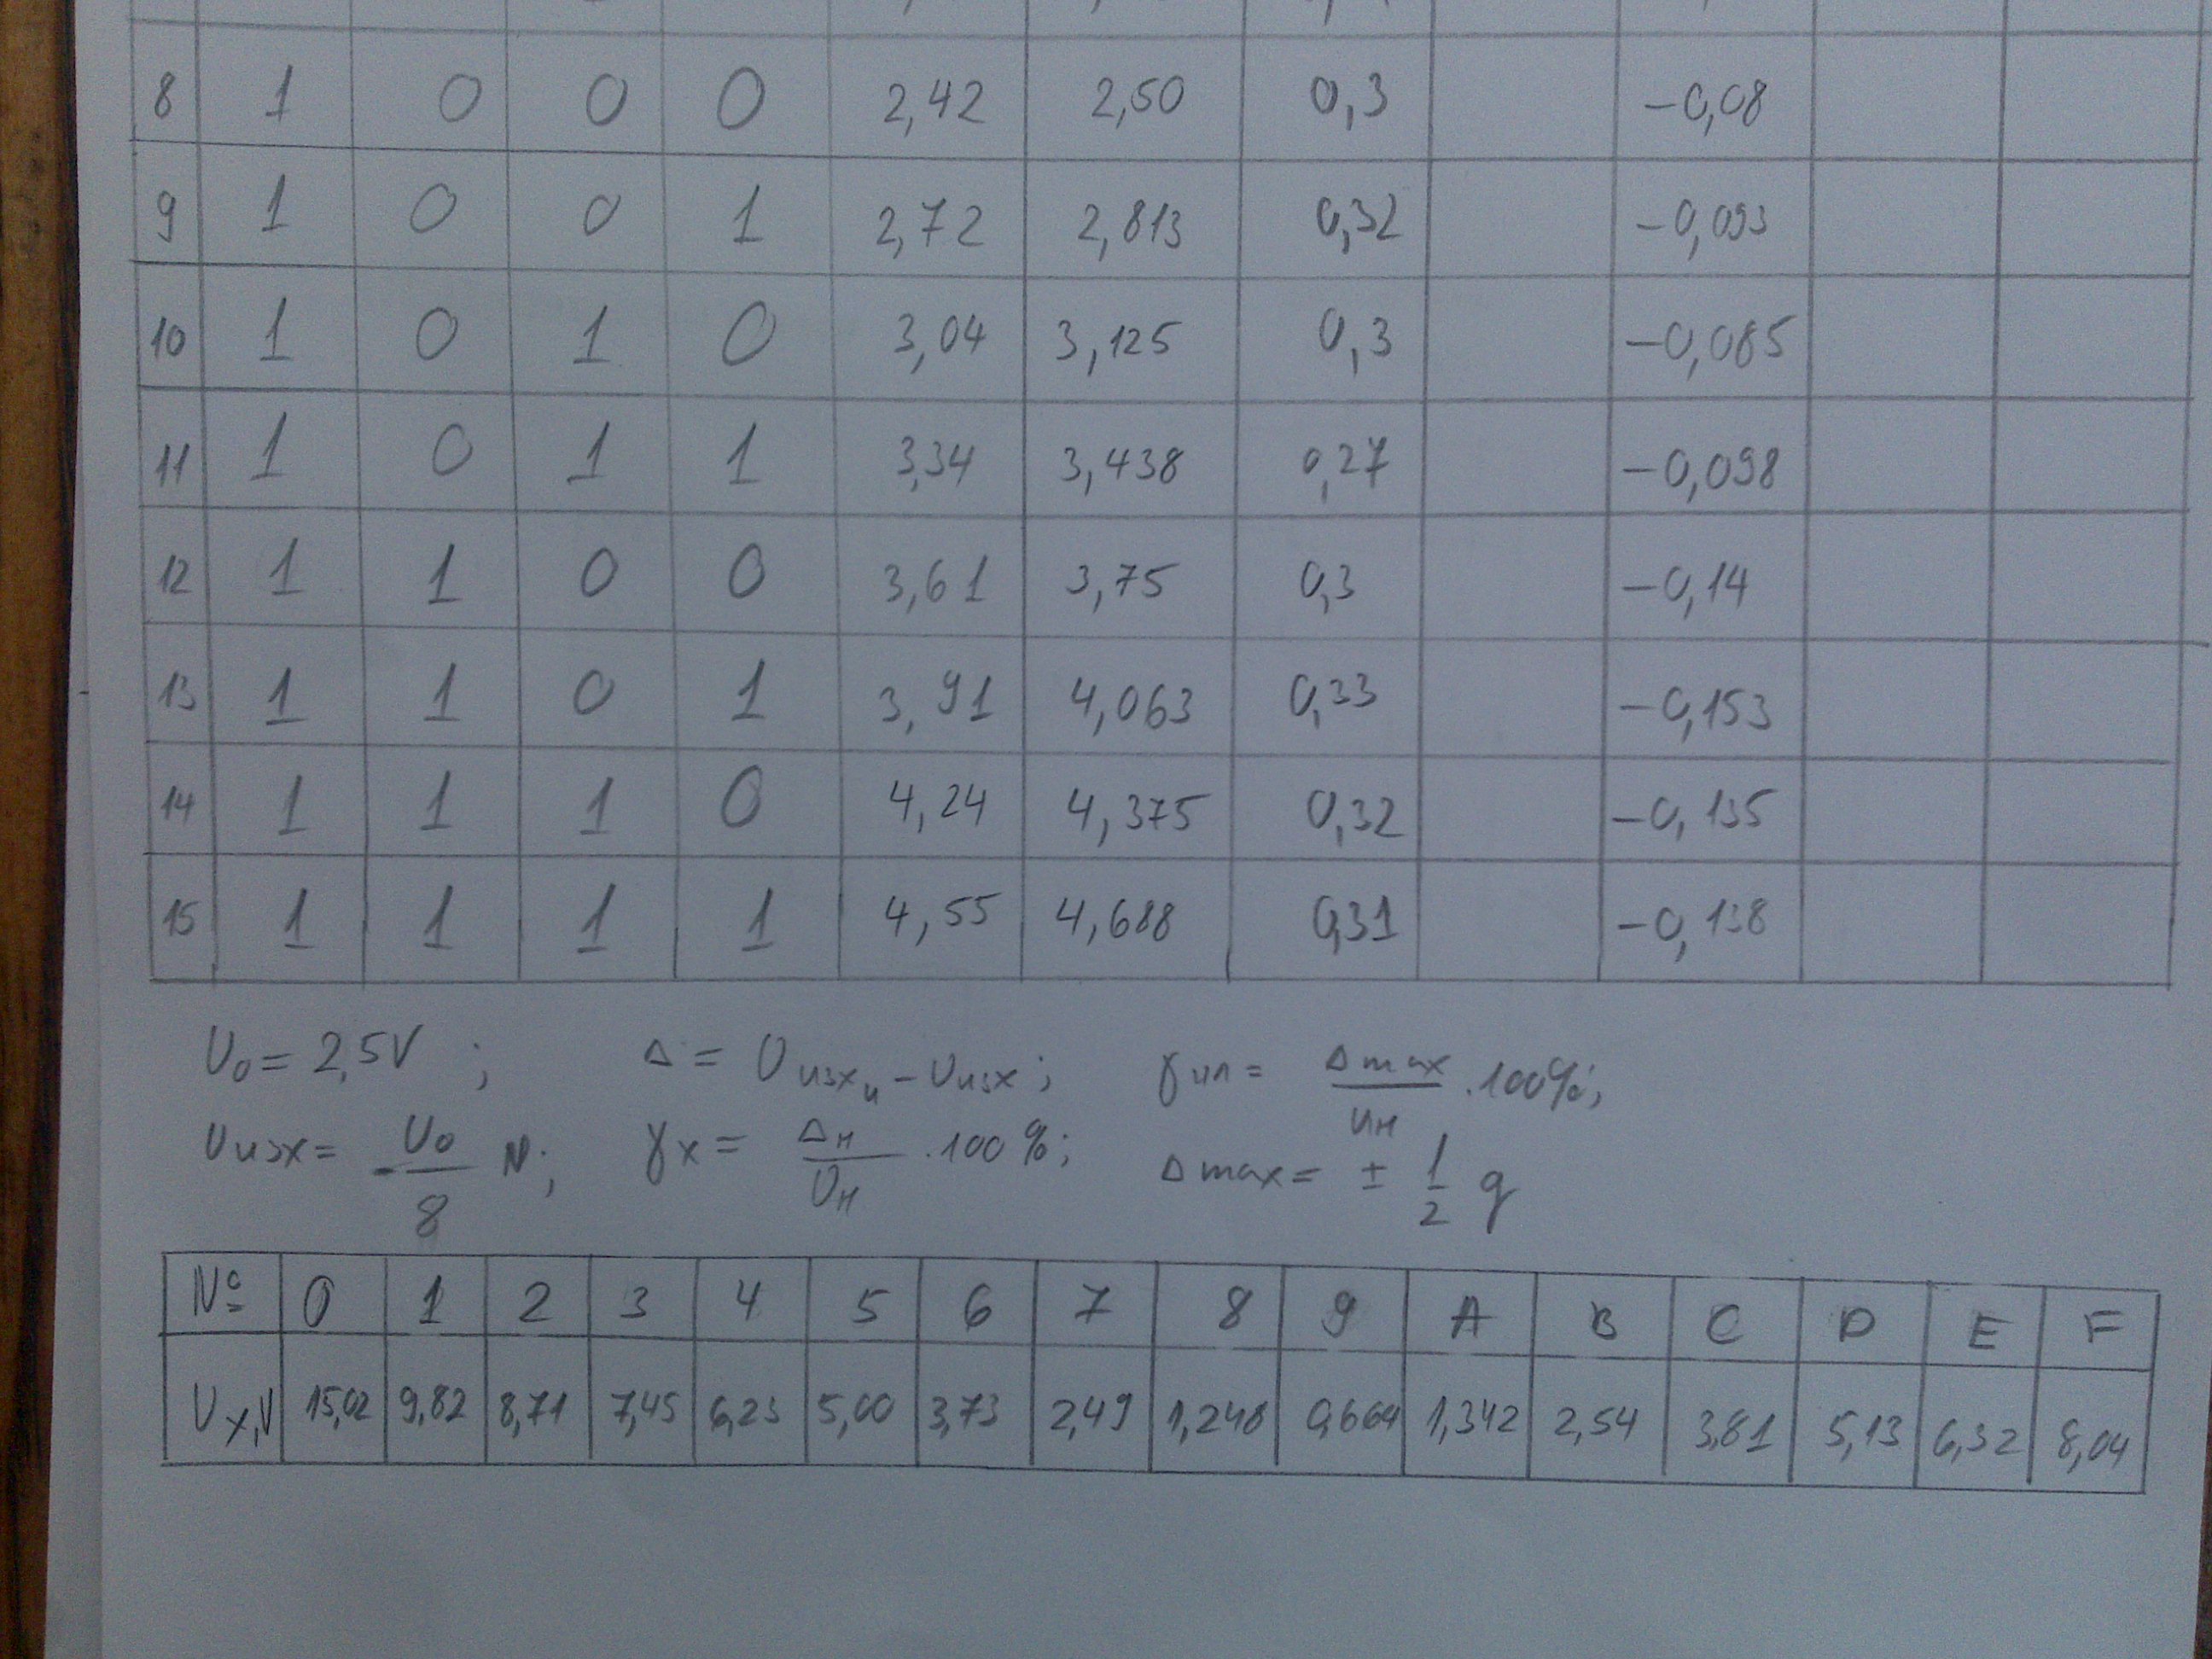 8 1 0 0 0 2,42 2,50 0,3 -0,08
9 1 0 0 1 2,72 2,813 0,32 -0,093
10 1 0 1 0 3,04 3,125 0,3 -0,085
11 1 0 1 1 3,34 3,438 0,27 -0,098
12 1 1 0 0 3,61 3,75 0,3 -0,14
13 1 1 0 1 3,91 4,063 0,33 -0,153
14 1 1 1 0 4,24 4,375 0,32 -0,135
15 1 1 1 1 4,55 4,688 0,31 -0,138
U₀ = 2,5V ; Δ = Uизхᵤ - Uизх ; γил = Δmax/Uн . 100%;
Uизх = -U₀/8 N; γx = Δн/Uн . 100%; Δmax = ± 1/2 q
№ 0 1 2 3 4 5 6 7 8 9 A B C D E F
Ux,V 15,02 9,82 8,71 7,45 6,23 5,00 3,73 2,49 1,248 0,664 1,342 2,54 3,81 5,13 6,32 8,04